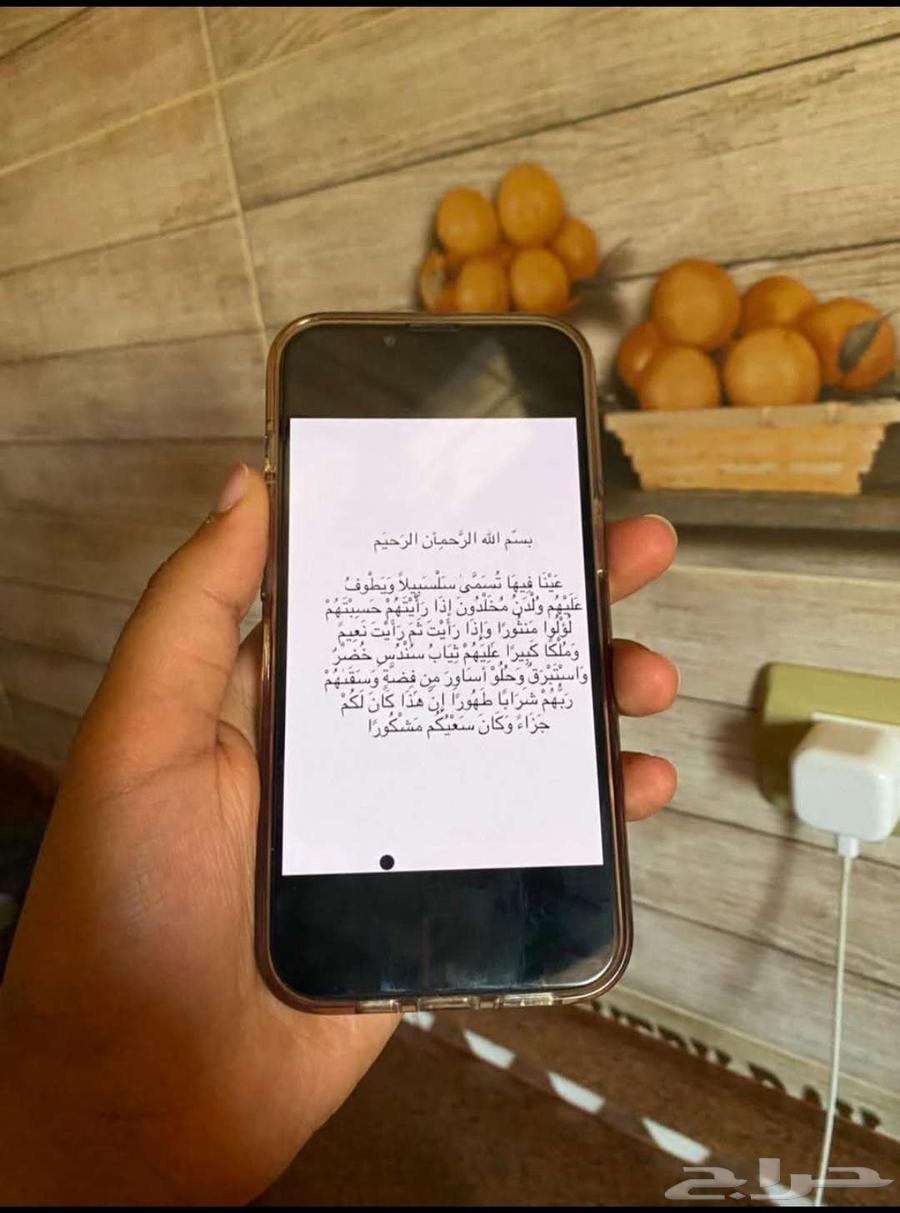 بسم الله الرحمان الرحيم
عَيْنَا فِيهَا تُسَمَّىٰ سَلْسَبِيلاً وَيَطُوفُ
عَلَيْهِم وِلْدَٰنٌ مُخَلَّدُونَ إِذَا رَأَيْتَهُمْ حَسِبْتَهُمْ
لُؤْلُوا مَنثُورًا وَإِذَا رَأَيْتَ ثَمَّ رَأَيْتَ نَعِيمً
وَمُلْكًا كَبِيرًا عَلِيَهُمْ ثِيَابُ سُندُسٍ خُضْرٌ
وَاستَبْرَقٌ وَحُلُوْ أسَاوِرَ مِن فِضَّةٍ وَسَقَىٰهُمْ
رَبُّهُمْ شَرَابًا طَهُورًا إِنَّ هَذَا كَانَ لَكُمْ
جَزَاءً وَكَانَ سَعْيُكُم مَشْكُورًا
حراج